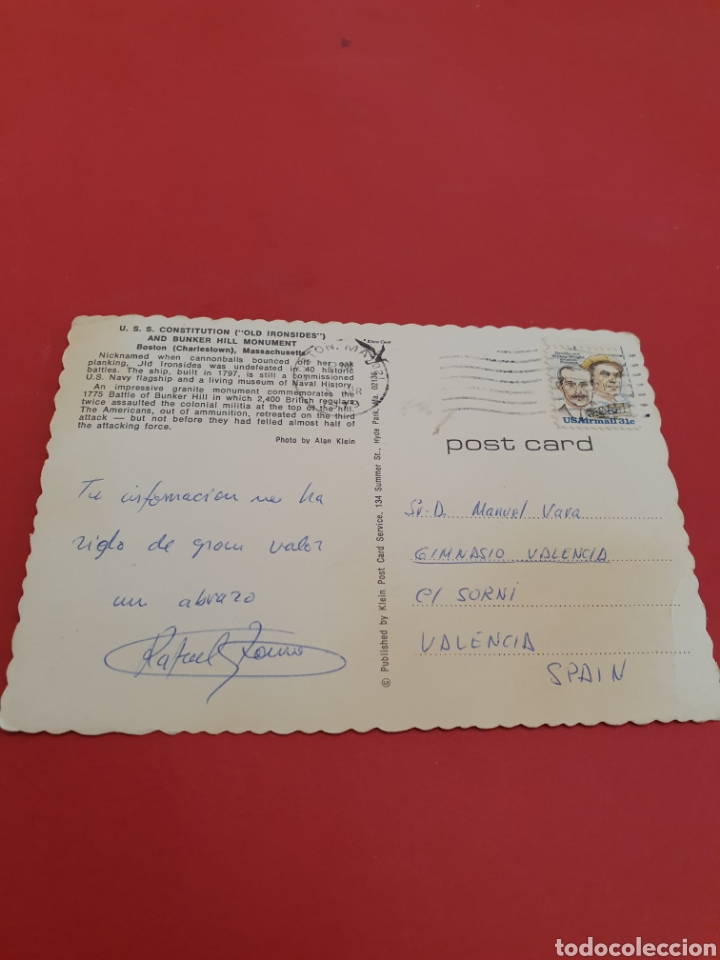 U. S. S. CONSTITUTION ("OLD IRONSIDES")
AND BUNKER HILL MONUMENT
Boston (Charlestown), Massachusetts
Nicknamed when cannonballs bounced off her oak
planking, Old Ironsides was undefeated in 40 historic
battles. The ship, built in 1797, is still a commissioned
U.S. Navy flagship and a living museum of Naval History.
An impressive granite monument commemorates the
1775 Battle of Bunker Hill in which 2,400 British regulars
twice assaulted the colonial militia at the top of the hill.
The Americans, out of ammunition, retreated on the third
attack — but not before they had felled almost half of
the attacking force.
Photo by Alan Klein
Tu informacion me ha
sido de gram valor
un abrazo
Rafael
© Published by Klein Post Card Service, 134 Summer St., Hyde Park, Ma. 02136
Klein Card
USAirmail 31c
post card
Sr. D. Manuel Vara
GIMNASIO VALENCIA
c/ SORNI
VALENCIA
SPAIN
todocoleccion